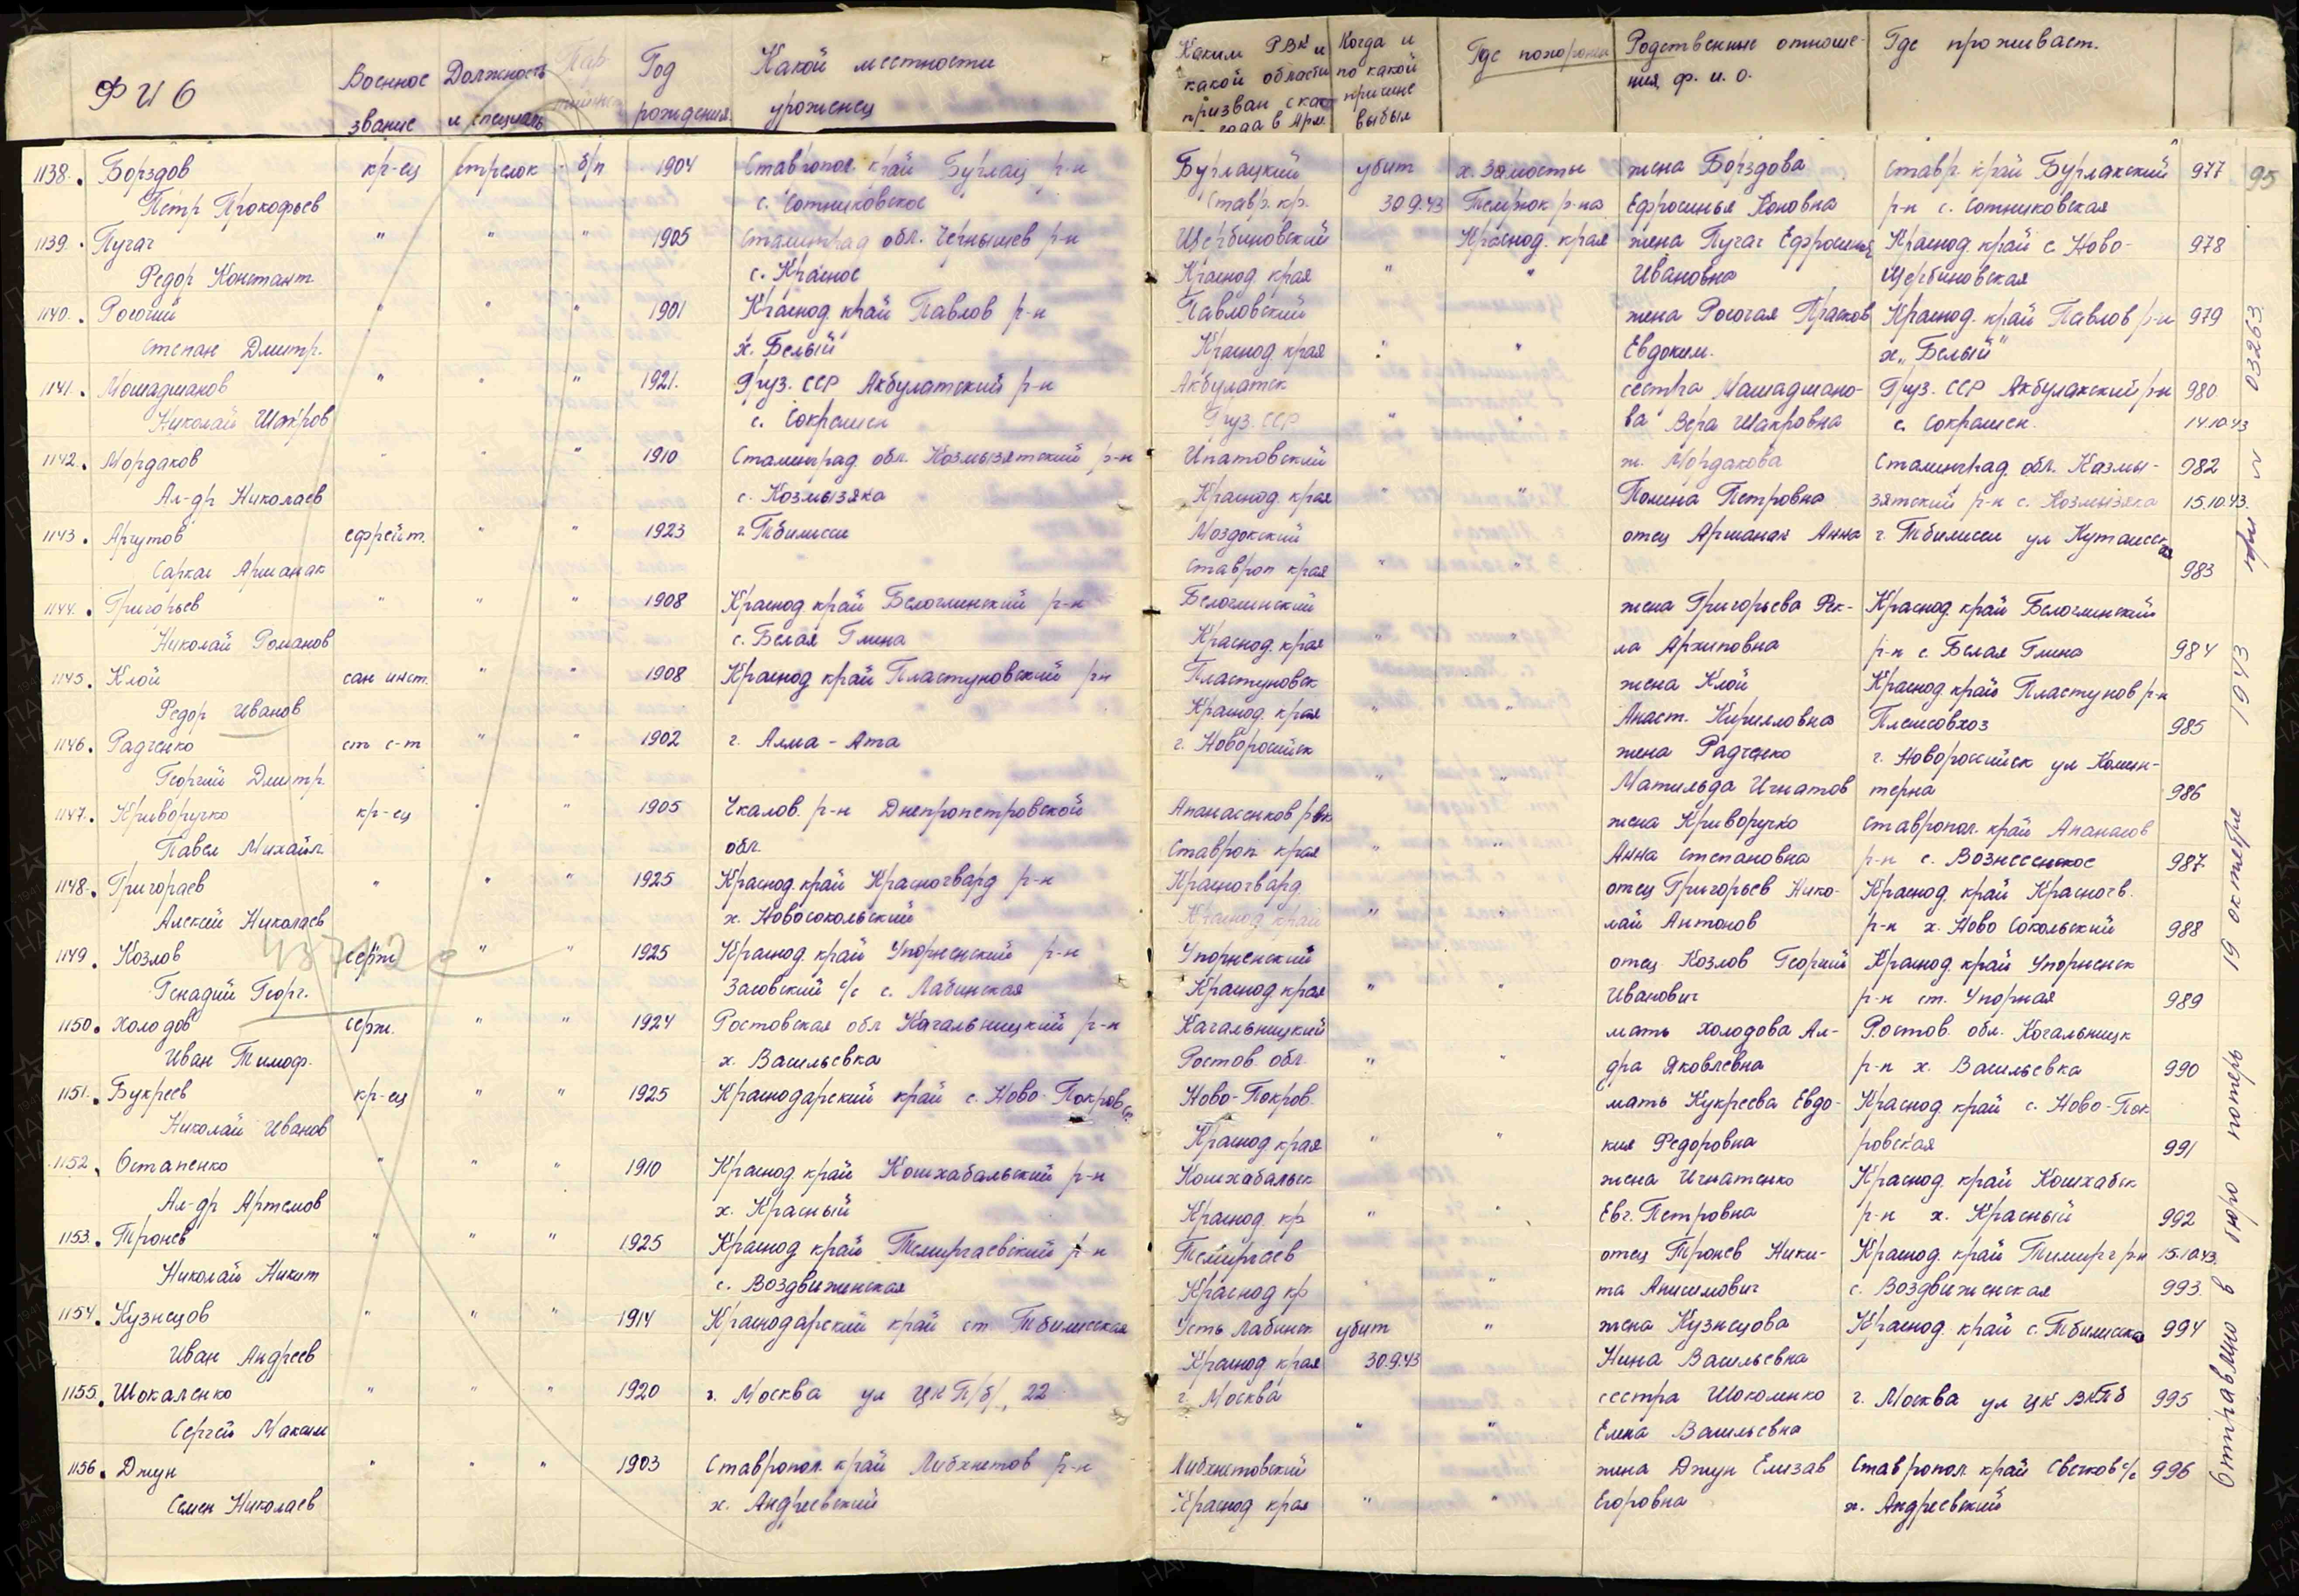 Ф И О
Военное звание
Должность и специаль
Год рождения
Какой местности уроженец
Каким РВК и какой области призван с какого года в Арм.
Когда и по какой причине выбыл
Где похоронен
Родственные отношения, ф. и. о.
Где проживает.
95
1138. Борздов кр-ец стрелок б/п 1904 Ставропол. край Бурлац р-н Бурлацкий убит х. Замосты жена Борздова Ставр. край Бурлакский 977
Петр Прокофьев с. Сотниковское Ставр. кр. 30.9.43 Темрюк р-на Ефросинья Коновна р-н с. Сотниковская
1139. Пугач " " " 1905 Сталинград обл. Чернышев р-н Щербиновский Краснод. края жена Пугач Ефросинья Краснод край с Ново- 978
Федор Констант с. Красное Краснод края " " Ивановна Щербиновская
1140. Рогочий " " " 1901 Краснод край Павлов р-н Павловский жена Рогочая Прасков Краснод. край Павлов р-н 979
Степан Дмитр. х. "Белый" Краснод края " " Евдоким. х. "Белый"
1141. Машадманов " " " 1921. Груз. ССР Акбулатский р-н Акбулатск сестра Машадмано- Груз. ССР Акбулакский р-н 980
Николай Шакров с. Сокрашен Груз. ССР " " ва Вера Шакровна с. Сокрашен. 14.10.43
1142. Мордаков " " " 1910 Сталинград. обл. Козмызятский р-н Ипатовский ж. Мордакова Сталинград. обл. Казмы- 982
Ал-др Николаев с. Козмызяка Краснод. края " " Полина Петровна зятский р-н с. Козмызяка 15.10.43.
1143. Аргутов ефрейт. " " 1923 г. Тбилисси Моздокский отец Аршанак Анна г. Тбилисси ул Кутаисск
Саркас Аршанак Ставроп края " " 983
1144. Григорьев " " " 1908 Краснод край Белоглинский р-н Белоглинский жена Григорьева Фек- Краснод край Белоглинский
Николай Романов с. Белая Глина Краснод. края " " ла Архиповна р-н с Белая Глина 984
1145. Клой сан инст. " " 1908 Краснод край Пластуновский р-н Пластуновск жена Клой Краснод. край Пластунов р-н
Федор Иванов Краснод. края " " Анаст. Кирилловна Племсовхоз 985
1146. Радченко ст с-т " " 1902 г. Алма-Ата г. Новоросийск жена Радченко г. Новороссийск ул Комин-
Георгий Дмитр. " " Матильда Игнатов терна 986
1147. Криворучко кр-ец " " 1905 Чкалов. р-н Днепропетровской Апанасенков рвк жена Криворучко Ставропол. край Апанасов
Павел Михайл. обл. Ставроп. края " " Анна Степановна р-н с. Вознесенское 987
1148. Григораев " " " 1925 Краснод. край Красногвард р-н Красногвард. отец Григорьев Нико- Краснод. край Красногв.
Алексей Николаев х. Новосокольский Краснод край " " лай Антонов р-н х. Ново Сокольский 988
1149. Козлов серж " " 1925 Краснод. край Упорненский р-н Упорненский отец Козлов Георгий Краснод. край Упорненск
Генадий Георг. Засовский с/с с. Лабинская Краснод края " " Иванович р-н ст. Упорная 989
1150. Холодов серж. " " 1924 Ростовская обл Кагальницкий р-н Кагальницкий мать Холодова Ал- Ростов. обл. Когальницк
Иван Тимоф. х. Васильевка Ростов. обл. " " дра Яковлевна р-н х. Васильевка 990
1151. Букреев кр-ец " " 1925 Краснодарский край с. Ново-Покровс. Ново-Покров. мать Кукреева Евдо- Краснод край с. Ново-Пок
Николай Иванов Краснод края " " кия Федоровна ровская 991
1152. Остапенко " " " 1910 Краснод край Кошхабальский р-н Кошхабальск жена Игнатенко Краснод. край Кошхабск
Ал-др Артемов х. Красный Краснод. кр " " Евг. Петровна р-н х. Красный 992
1153. Тронев " " " 1925 Краснод край Темиргаевский р-н Темиргаев отец Тронев Ники- Краснод. край Тимирг р-н 15.10.43.
Николай Никит с. Воздвиженская Краснод кр " " та Анисимович с. Воздвиженская 993.
1154. Кузнецов " " " 1914 Краснодарский край ст Тбилисская Усть Лабинск убит " жена Кузнецова Краснод. край с. Тбилисска 994
Иван Андреев Краснод края 30.9.43 Нина Васильевна
1155. Шокаленко " " " 1920 г. Москва ул ЦК П/б/, 22 г. Москва сестра Шоколенко г. Москва ул ЦК ВКПб 995
Сергей Максим " " Елена Васильевна
1156. Джун " " " 1903 Ставропол. край Либхнетов р-н Либхнетовский жена Джун Елизав Ставропол край Свечков с/с 996
Семен Николаев х. Андреевский Краснод края " " Егоровна х. Андреевский
Отправлено в бюро потерь 19 октября 1943 при № 03263.